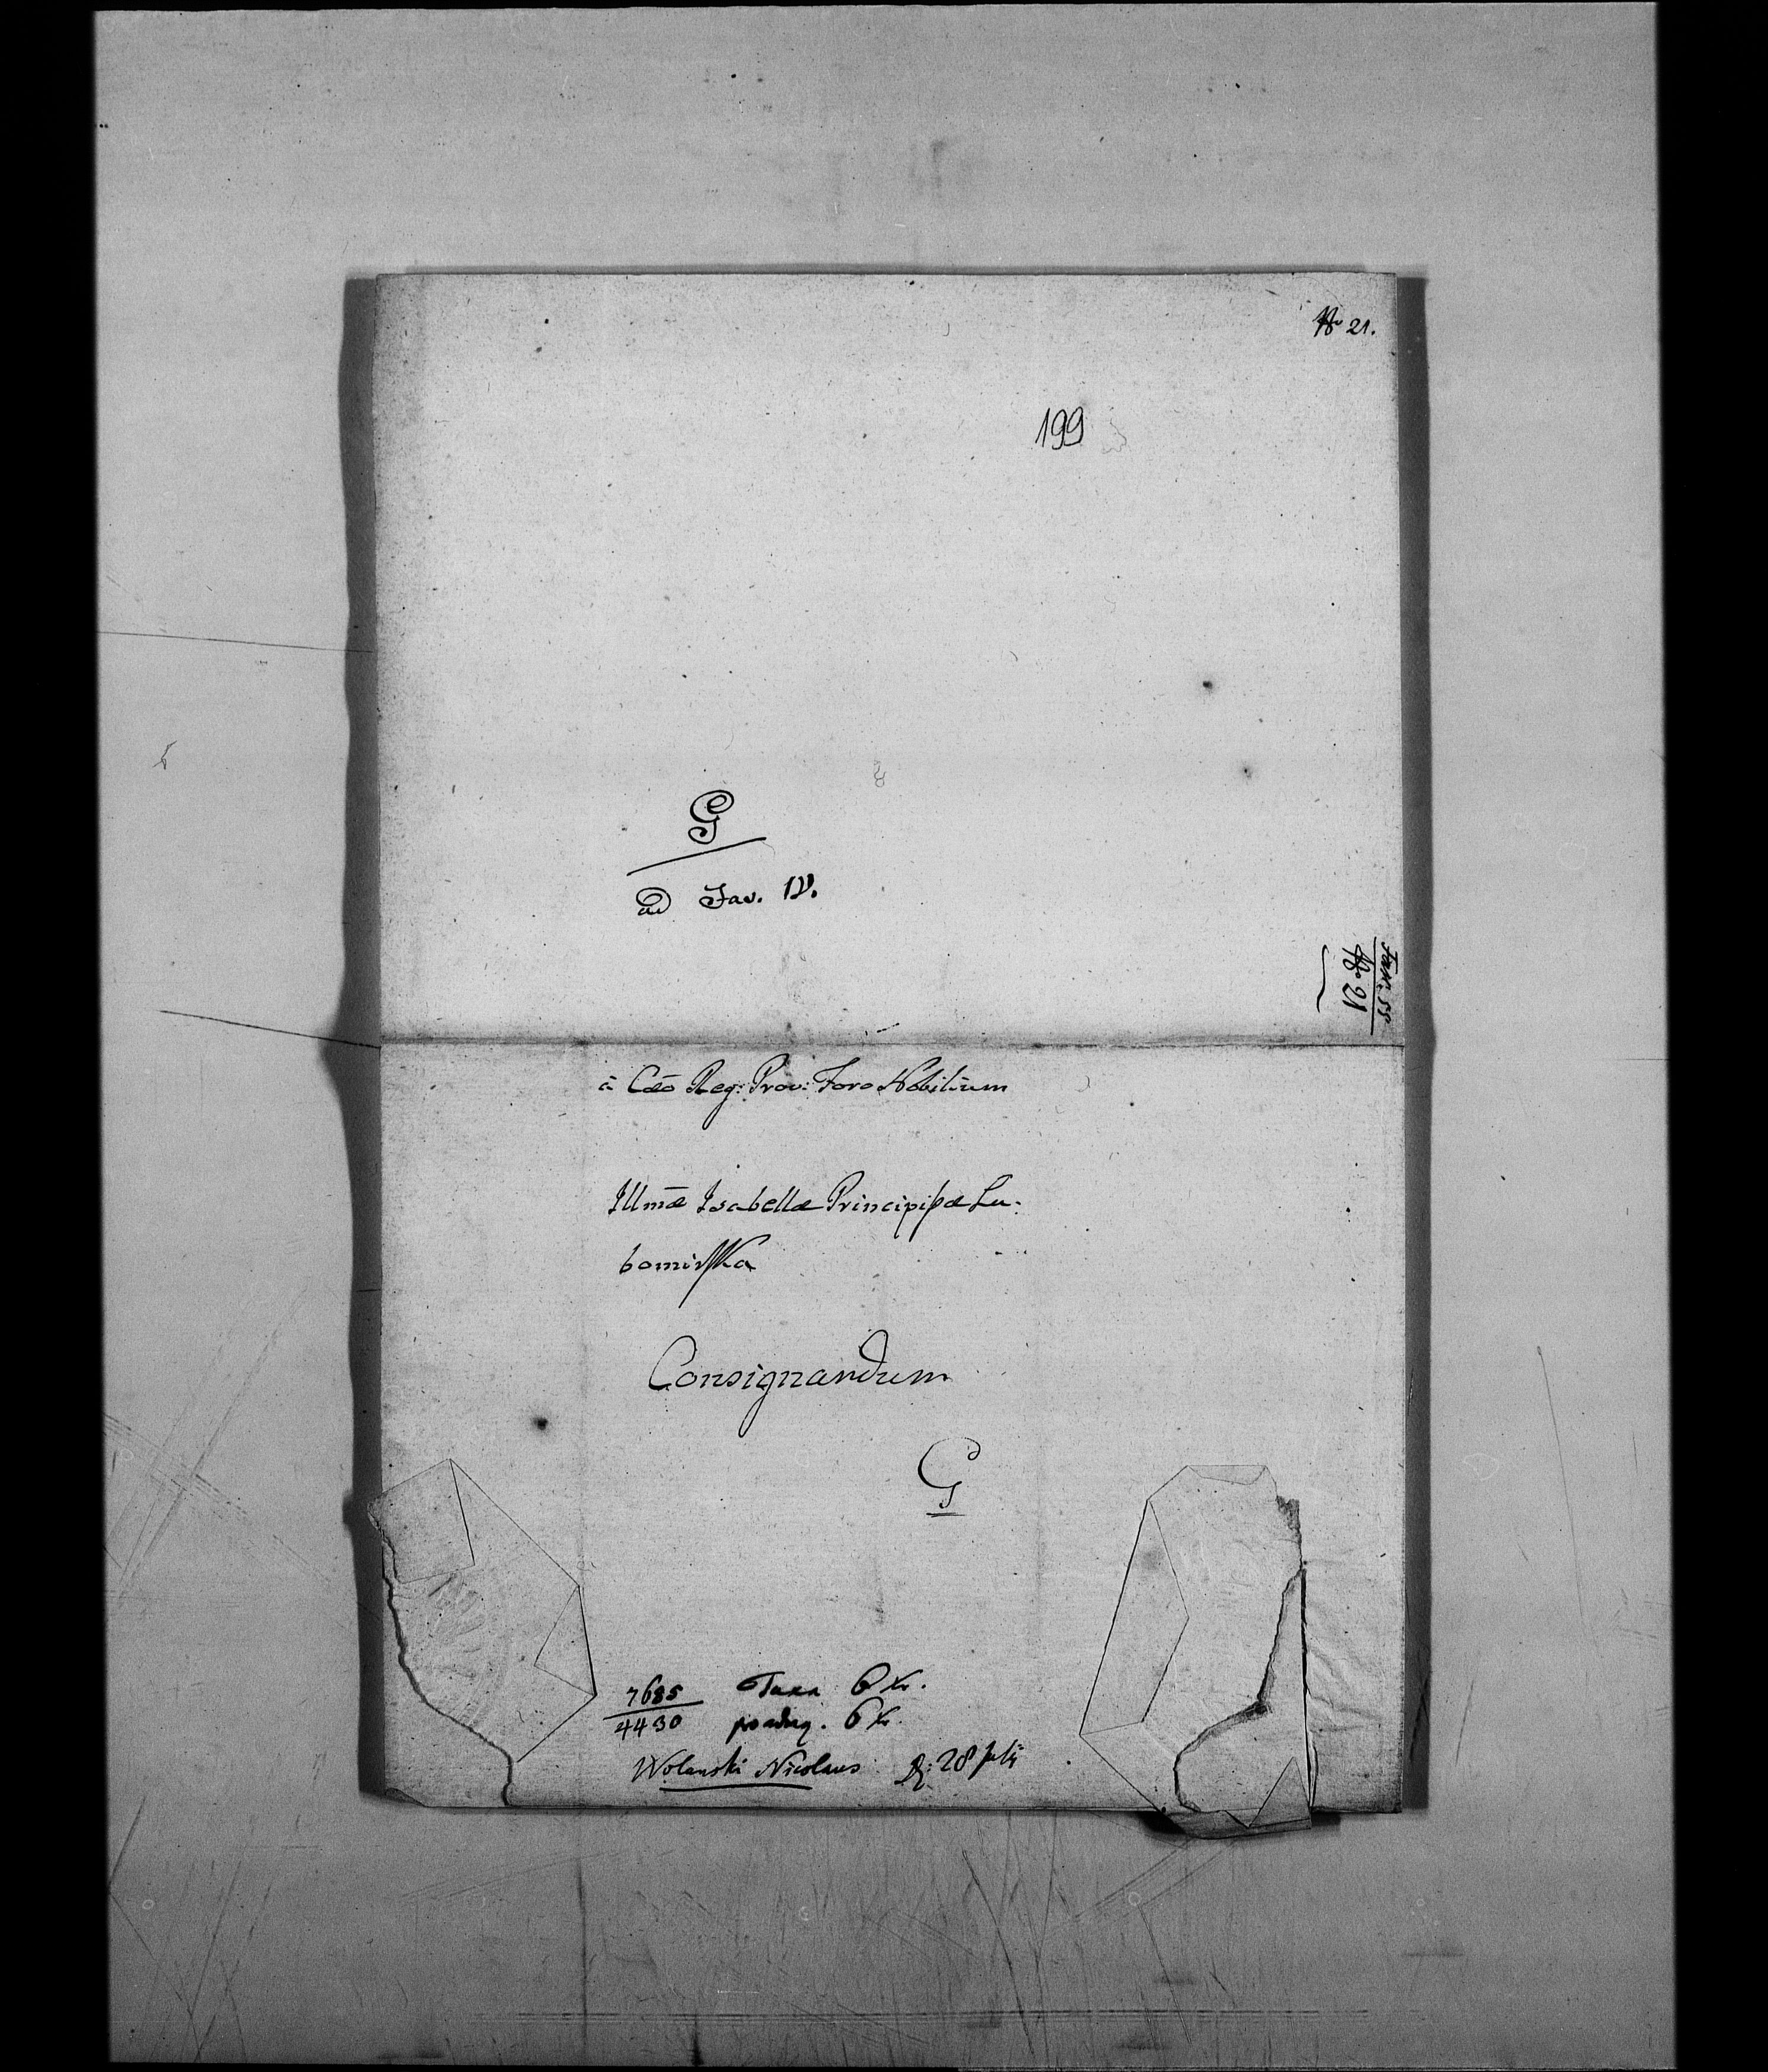 No 21.
199
G
ad Fas. IV.
Fasc: 55
No 21
à Cæo Reg: Prov: Foro Nobilium
Illmæ Isabellæ Principissæ Lu-
bomirska
Consignandum
G
7685 Taxa 6 Xr.
4430 6 Xr.
Wolanski Nicolaus 28 Julii